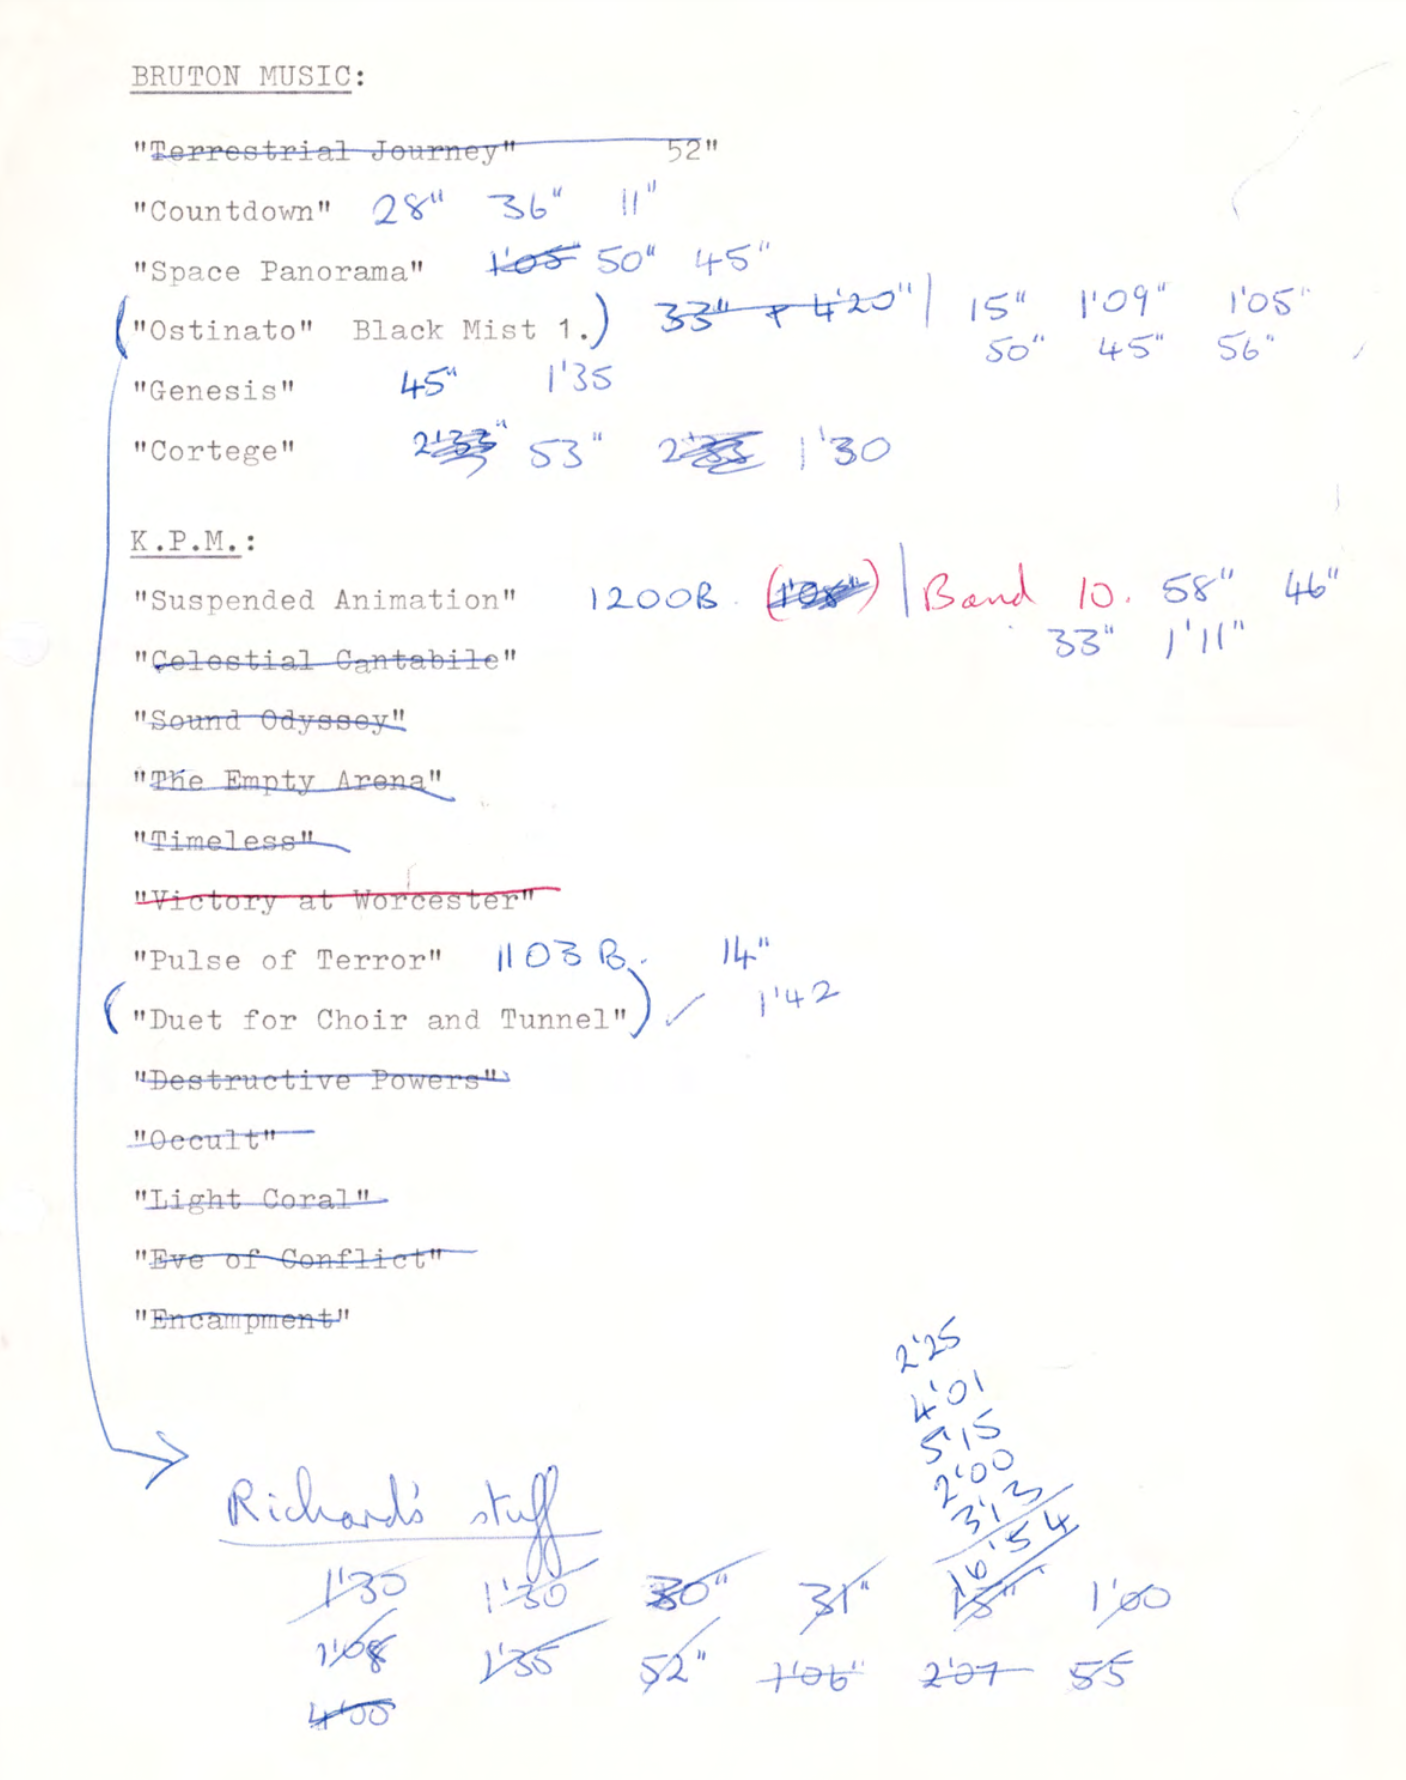 BRUTON MUSIC:
"Terrestrial Journey" 52"
"Countdown" 28" 36" 11"
"Space Panorama" 1'05" 50" 45"
("Ostinato" Black Mist 1.) 33" + 4'20" | 15" 1'09" 1'05"
50" 45" 56"
"Genesis" 45" 1'35
"Cortege" 2'33" 53" 2'33 1'30
K.P.M.:
"Suspended Animation" 1200B. (1'08") | Band 10. 58" 46"
33" 1'11"
"Celestial Cantabile"
"Sound Odyssey"
"The Empty Arena"
"Timeless"
"Victory at Worcester"
"Pulse of Terror" 1103B. 14"
("Duet for Choir and Tunnel") ✓ 1'42
"Destructive Powers"
"Occult"
"Light Coral"
"Eve of Conflict"
"Encampment"
2'25
4'01
5'15
2'00
3'13
16'54
Richard's stuff
1'30 1'30 30" 31" 15" 1'00
1'08 1'35 52" 1'06" 2'07 55
4'00